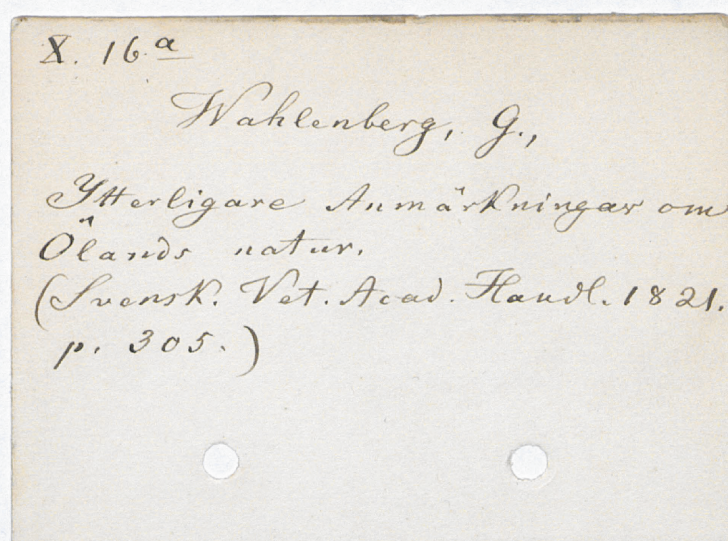 X. 16.a
Wahlenberg, G.,
Ytterligare Anmärkningar om
Ölands natur.
(Svensk. Vet. Acad. Handl. 1821.
p. 305.)